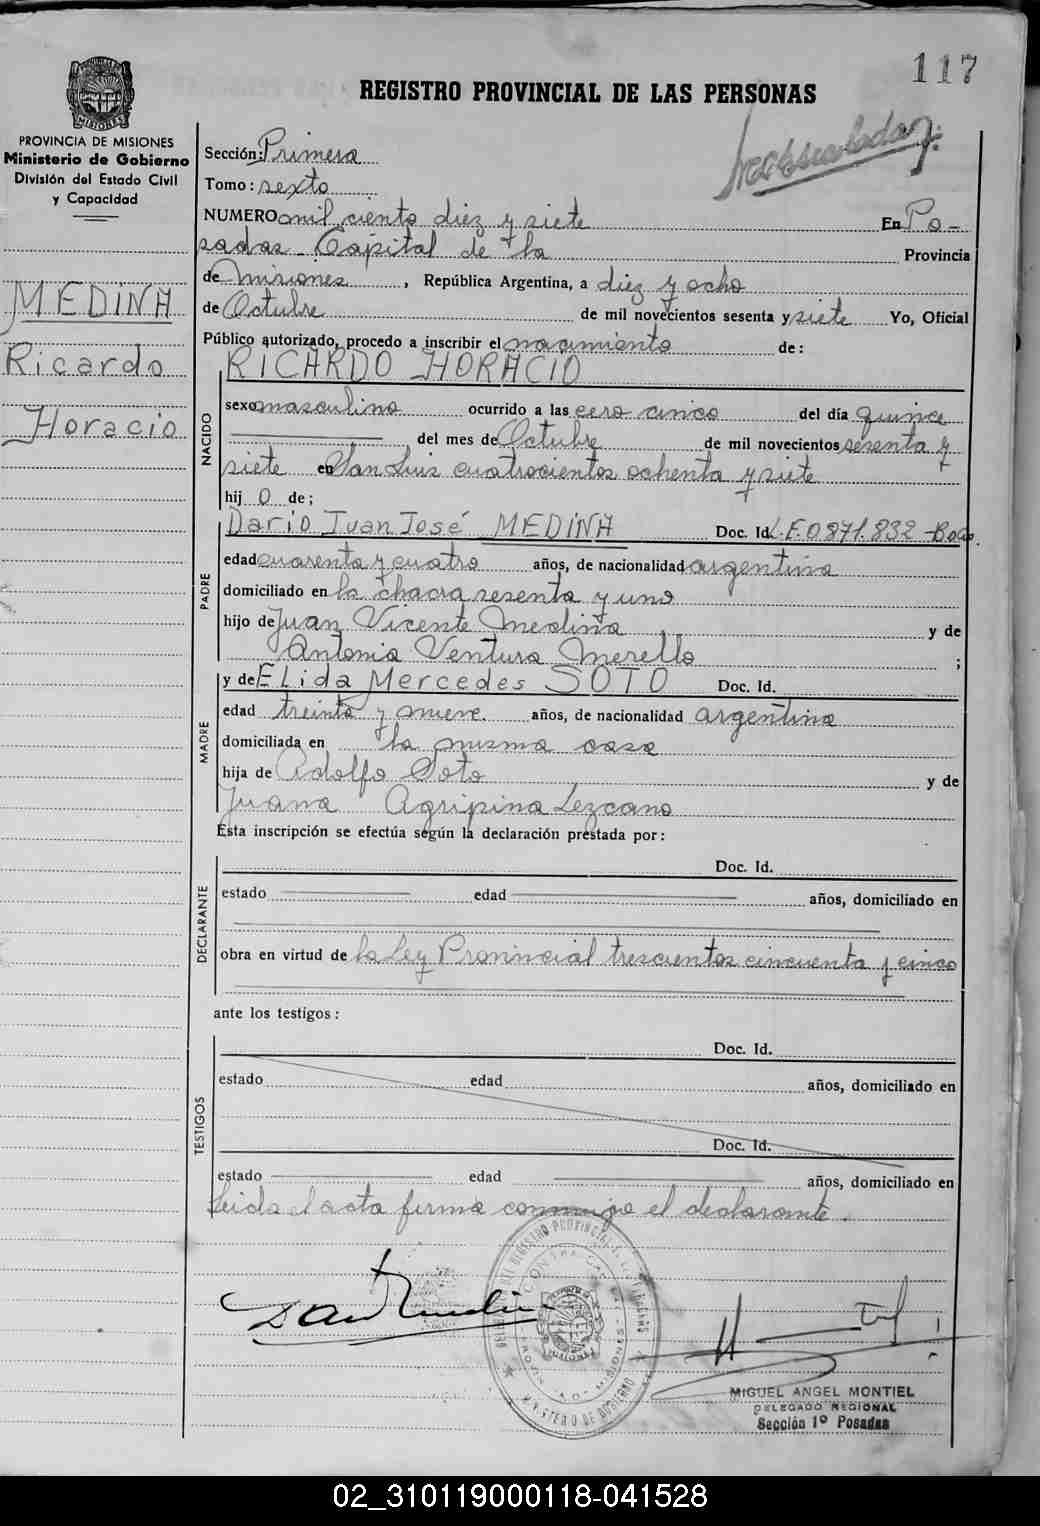 117
REGISTRO PROVINCIAL DE LAS PERSONAS
PROVINCIA DE MISIONES
Ministerio de Gobierno
División del Estado Civil
y Capacidad
MEDINA
Ricardo
Horacio
Sección: Primera
Tomo: sexto
NUMERO mil ciento diez y siete En Po-
sadas Capital de la Provincia
de Misiones, República Argentina, a diez y ocho
de Octubre de mil novecientos sesenta y siete Yo, Oficial
Público autorizado, procedo a inscribir el nacimiento de:
NACIDO
RICARDO HORACIO
sexo masculino ocurrido a las cero cinco del día quince
del mes de Octubre de mil novecientos sesenta y
siete en San Luis cuatrocientos ochenta y siete
hij o de;
PADRE
Dario Juan José MEDINA Doc. Id. L.E.0871.832
edad cuarenta y cuatro años, de nacionalidad argentina
domiciliado en la chacra sesenta y uno
hijo de Juan Vicente Medina y de
Antonia Ventura Merello ;
MADRE
y de ELida Mercedes SOTO Doc. Id.
edad treinta y nueve años, de nacionalidad argentina
domiciliada en la misma casa
hija de Adolfo Soto y de
Juana Agripina Lezcano
Esta inscripción se efectúa según la declaración prestada por:
DECLARANTE
Doc. Id.
estado edad años, domiciliado en
obra en virtud de la Ley Provincial trescientos cincuenta y cinco
ante los testigos:
TESTIGOS
Doc. Id.
estado edad años, domiciliado en
Doc. Id.
estado edad años, domiciliado en
Leida el acta firma conmigo el declarante.
MIGUEL ANGEL MONTIEL
DELEGADO REGIONAL
Sección 1º Posadas
02_310119000118-041528